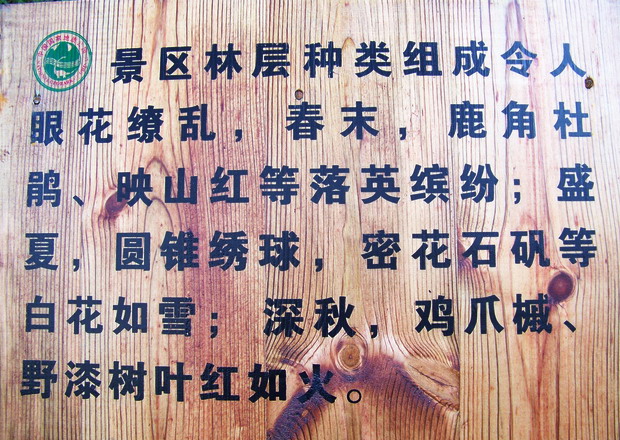 景区林层种类组成令人
眼花缭乱，春末，鹿角杜
鹃、映山红等落英缤纷；盛
夏，圆锥绣球，密花石矾等
白花如雪；深秋，鸡爪槭、
野漆树叶红如火。